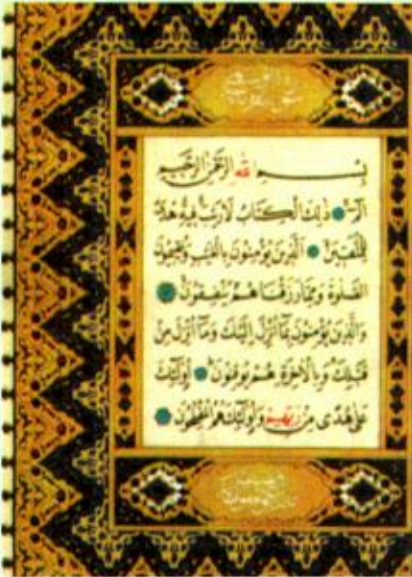 بسم الله الرحمن الرحيم
الم ذلك الكتاب لا ريب فيه هدى
للمتقين الذين يؤمنون بالغيب ويقيمون
الصلوة ومما رزقناهم ينفقون
والذين يؤمنون بما أنزل إليك وما أنزل من
قبلك وبالآخرة هم يوقنون أولئك
على هدى من ربهم وأولئك هم المفلحون